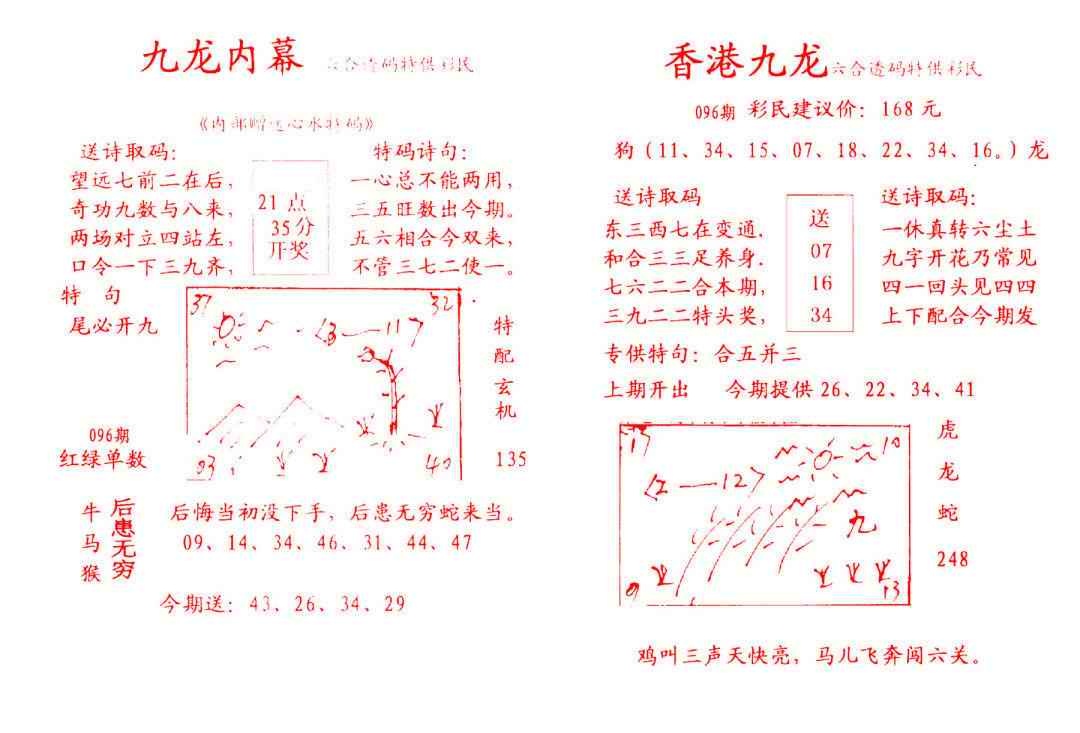 九龙内幕 六合透码特供彩民
《内部赠送心水特码》
送诗取码：
望远七前二在后，
奇功九数与八来，
两场对立四站左，
口令一下三九齐，
21点
35分
开奖
特码诗句：
一心总不能两用，
三五旺数出今期。
五六相合今双来，
不管三七二使一。
特 句
尾必开九
37
32
〈3—11〉
03
40
特
配
玄
机
135
096期
红绿单数
牛
马
猴
后患无穷
后悔当初没下手，后患无穷蛇来当。
09、14、34、46、31、44、47
今期送：43、26、34、29
香港九龙 六合透码特供彩民
096期 彩民建议价：168元
狗（11、34、15、07、18、22、34、16。）龙
送诗取码
东三西七在变通，
和合三三足养身．
七六二二合本期，
三九二二特头奖，
送
07
16
34
送诗取码：
一休真转六尘土
九字开花乃常见
四一回头见四四
上下配合今期发
专供特句：合五并三
上期开出 今期提供26、22、34、41
10
〈2—12〉
九
13
虎
龙
蛇
248
鸡叫三声天快亮，马儿飞奔闯六关。